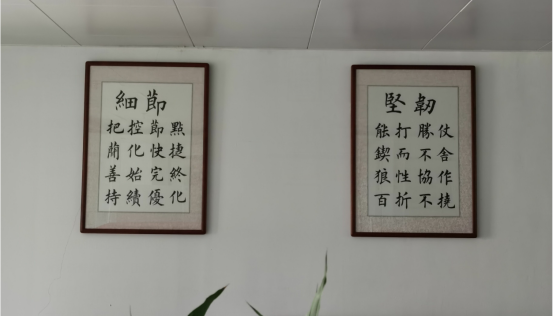 細節
把控節點
簡化快捷
善始完終
持續優化
堅韌
能打勝仗
鍥而不舍
狼性協作
百折不撓